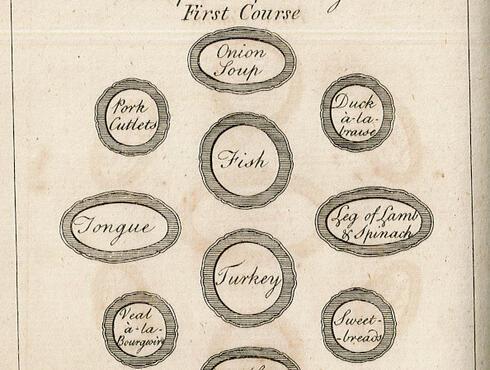 First Course
Onion
Soup
Pork
Cutlets
Duck
à-la-
braise
Fish
Tongue
Leg of Lamb
& Spinach
Turkey
Veal
à-la-
Bourgeois
Sweet-
breads